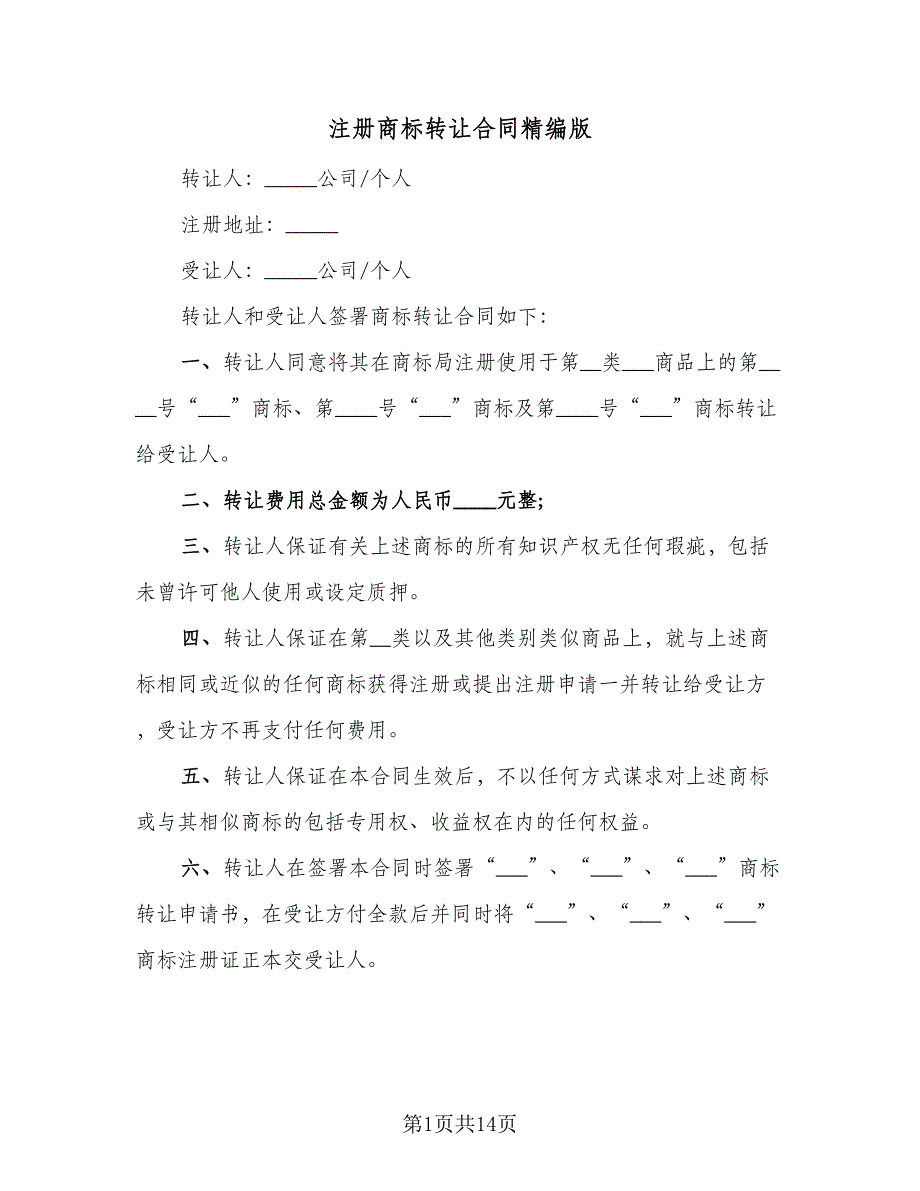 注册商标转让合同精编版
转让人：_____公司/个人
注册地址：_____
受让人：_____公司/个人
转让人和受让人签署商标转让合同如下：
一、转让人同意将其在商标局注册使用于第__类___商品上的第__
__号“___”商标、第____号“___”商标及第____号“___”商标转让
给受让人。
二、转让费用总金额为人民币____元整;
三、转让人保证有关上述商标的所有知识产权无任何瑕疵，包括
未曾许可他人使用或设定质押。
四、转让人保证在第__类以及其他类别类似商品上，就与上述商
标相同或近似的任何商标获得注册或提出注册申请一并转让给受让方
，受让方不再支付任何费用。
五、转让人保证在本合同生效后，不以任何方式谋求对上述商标
或与其相似商标的包括专用权、收益权在内的任何权益。
六、转让人在签署本合同时签署“___”、“___”、“___”商标
转让申请书，在受让方付全款后并同时将“___”、“___”、“___”
商标注册证正本交受让人。
第1页共14页